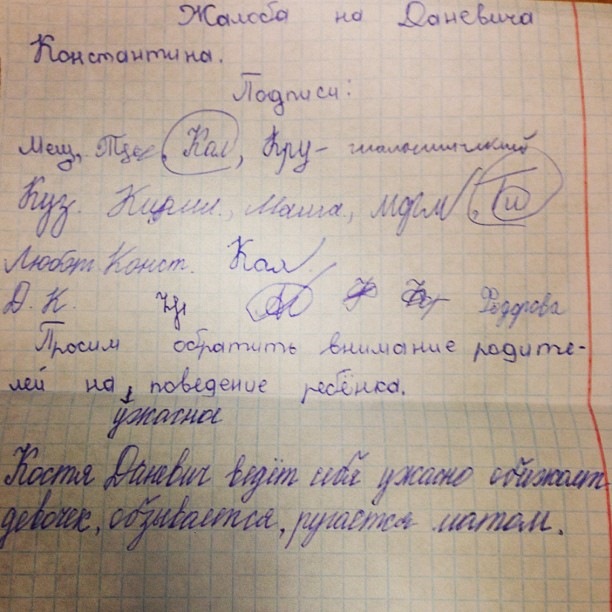 Жалоба на Даневича
Константина.
Подписи:
Мещ, Кал, Кру-
Куз. Маша,
Любят Конст. Кал
Д. К. Фёдорова
Просим обратить внимание родите-
лей на поведение ребёнка.
ужасное
Костя Даневич ведёт себя ужасно обижает
девочек, обзывается, ругается матом.